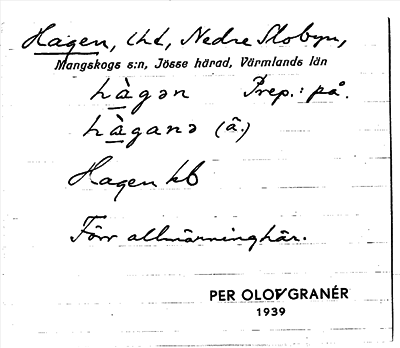 Hagen, lht, Nedre Slobyn,
Mangskogs s:n, Jösse härad, Värmlands län
hàgən Prep.: på.
hàganə (ä.)
Hagen hb
Förr allmänning här.
PER OLOV GRANÉR
1939